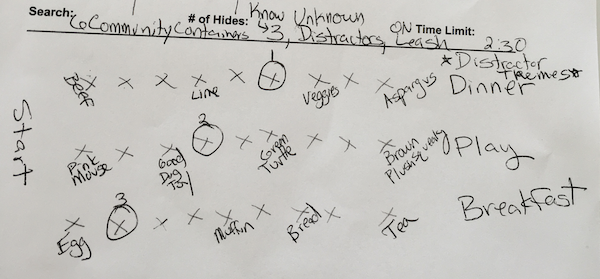 Know Unknown
Search: CoCommunity Containers # of Hides: ↳3, Distractors, ON Leash Time Limit: 2:30
*Distractor Themes*
1
Beef Line Veggies Asparagus Dinner
Start
2
Pink Mouse Good Dog Toy Green Turtle Brown Plush Squeaky Play
3
Egg Muffin Bread Tea Breakfast